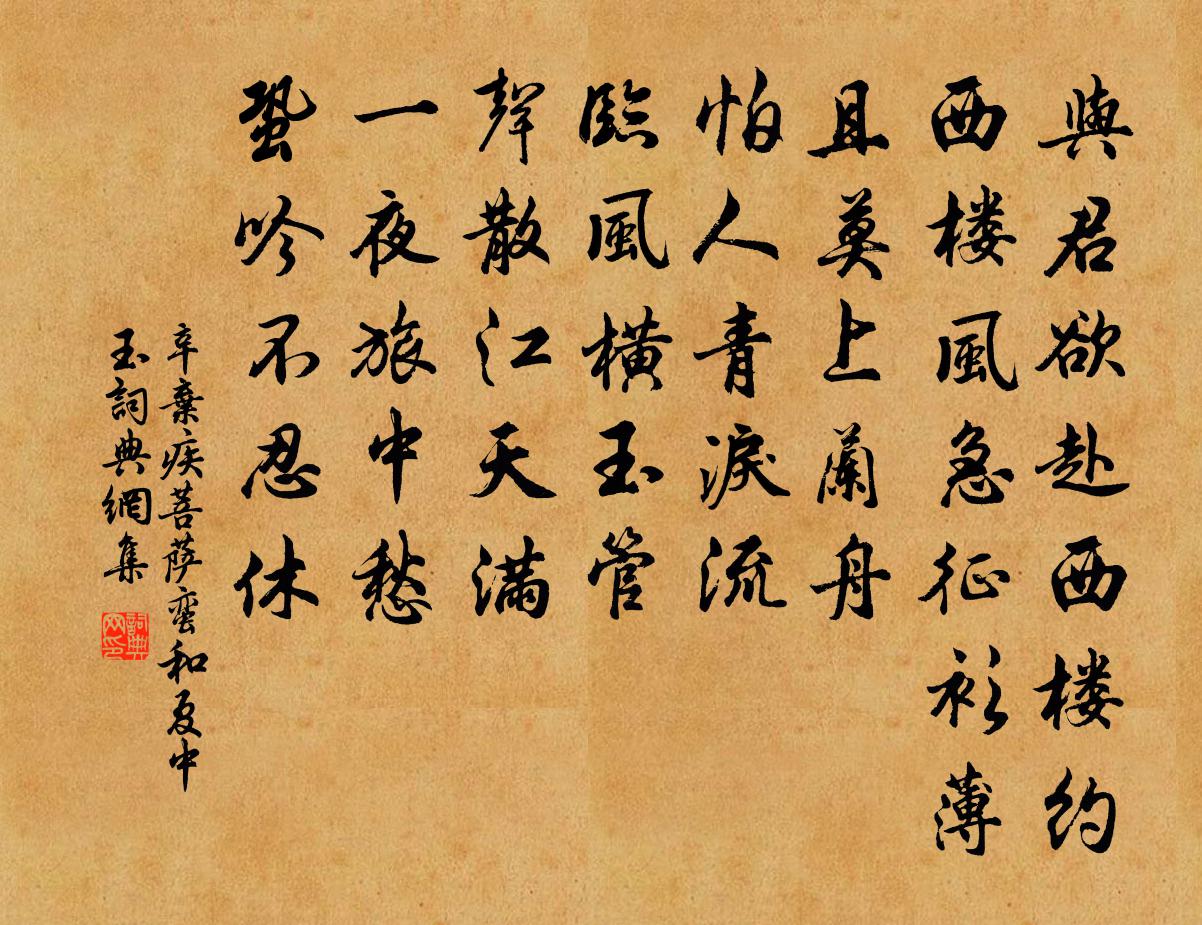 與君欲赴西楼约
西楼風急征衫薄
且莫上蘭舟
怕人青淚流
臨風橫玉管
聲散江天满
一夜旅中愁
蛩吟不忍休
辛棄疾菩萨蛮和夏中
玉詞典網集
詞典网印